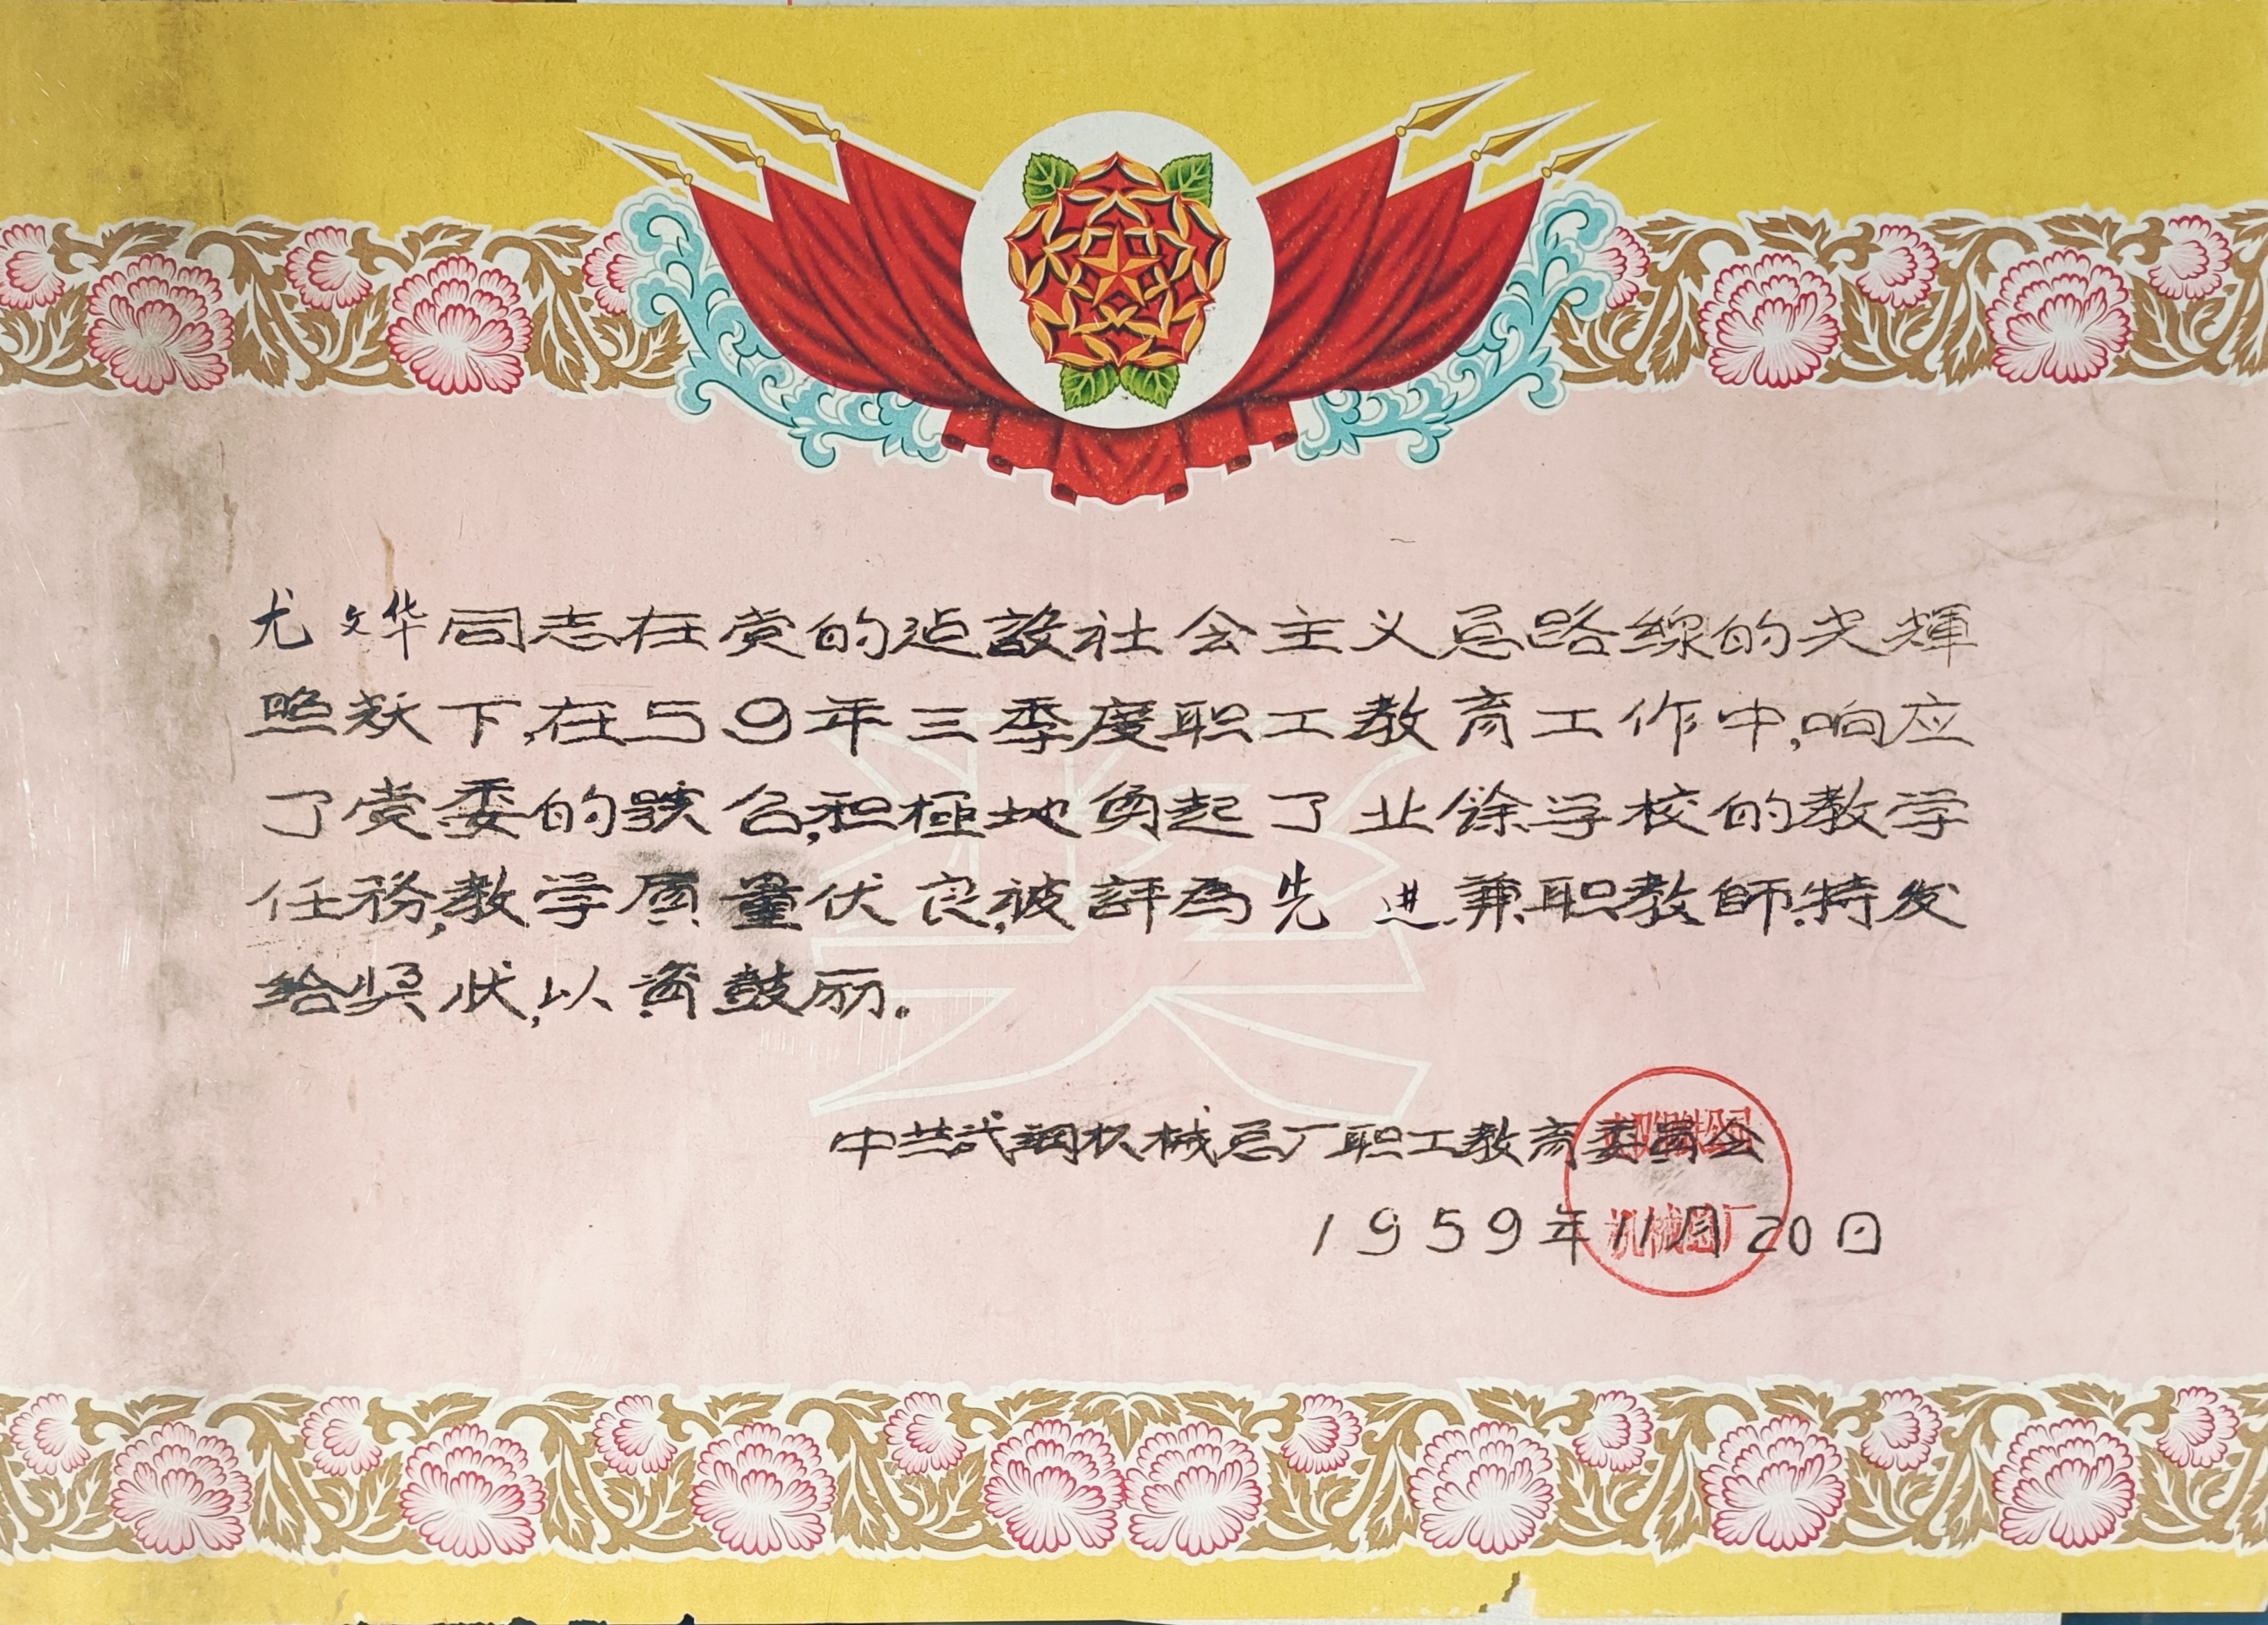 尤文华同志在党的建設社会主义总路線的光輝
照耀下,在59年三季度职工教育工作中,响应
了党委的号召,积極地负起了业餘学校的教学
任务,教学质量优良,被評為先进兼职教師.特发
给奖状,以资鼓励.
奖
中共武鋼机械总厂职工教育委員会
1959年11月20日
机械总厂